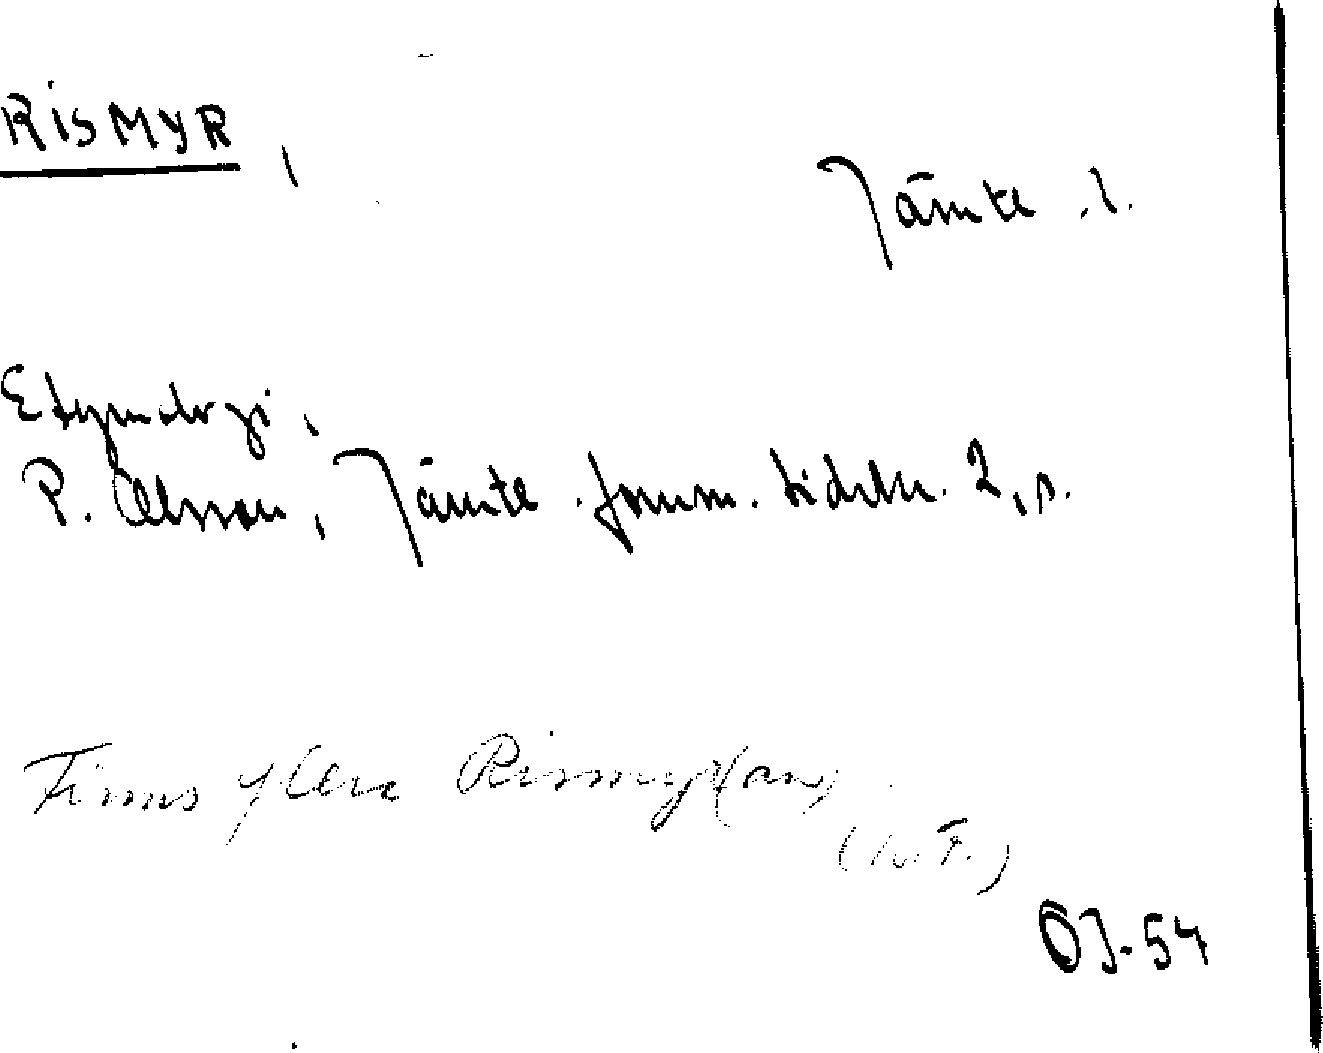 RISMYR,
Jämtl. l.
Etymologi,
P. Olsson, Jämtl. fornm. tidskr. 2, s.
Finns flera Rismyr(ar)
ÖJ-54